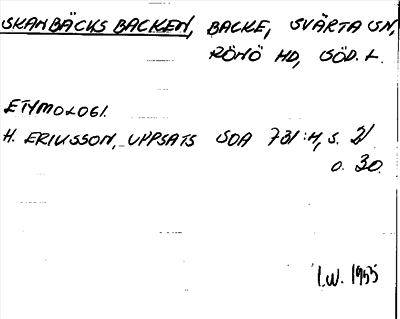 SKAMBÄCKS BACKEN, BACKE, SVÄRTA SN,
RÖNÖ HD, SÖD. L.
ETYMOLOGI.
H. ERIKSSON, UPPSATS SOA 731:H, S. 21
O. 30.
I.W. 1955